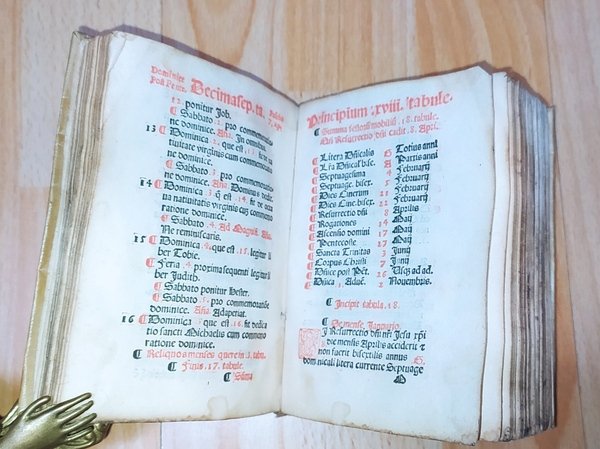 Dominice
Post Pente.
Decimasep. ta.
12. ponitur Job.
¶ Sabbato 2. pro commemoratio
ne dominice. Aña. In omnibus.
13 ¶ Dominica 2. que est 13. fit
tuitate virginis cum commemoratio
ne dominice.
¶ Sabbato 3. pro commemoratio
ne dominice. Aña. Dominus dedit.
14 ¶ Dominica 3. q̃ est 14. fit de octa
ua natiuitatis virginis cum commemo
ratione dominice.
¶ Sabbato 4. Ad Magnif. Aña.
Ne reminiscaris.
15 ¶ Dominica 4. que est 15. legitur li
ber Tobie.
¶ Feria 4. proxima sequenti legitur li
ber Judith.
¶ Sabbato ponitur Hester.
¶ Sabbato 5. pro commemoratiõe
dominice. Aña. Adaperiat.
16 ¶ Dominica que est 16. fit dedica
tio sancti Michaelis cum commemo
ratione dominice.
¶ Reliquos menses quere in 3. tabu.
¶ Finis .17. tabule.
¶ Sũma
Principium .xviii. tabule.
¶ Summa festorũ mobiliũ .18. tabule.
Qñ Resurrectio dñi cadit 8. Apri.
¶ Litera Dñicalis G Totius anni
¶ Lr̃a Dñical' bise. A Partis anni
¶ Septuagesima 4 Februarij
¶ Septuage. bisex. 5 Februarij
¶ Dies Cinerum 21 Februarij
¶ Dies Cine. bisex. 22 Februarij
¶ Resurrectio dñi 8 Aprilis
¶ Rogationes 14 Maij
¶ Ascensio domini 17 Maij
¶ Pentecoste 27 Maij
¶ Sancta Trinitas 3 Junij
¶ Corpus Christi 7 Junij
¶ Dñice post Pẽt. 26 Usq; ad ad.
¶ Dñica 1. Aduẽ. 2 Decembris.
¶ Incipit tabula .18.
¶ De mense Januario.
I Resurrectio dñi nr̃i Jesu xp̃i
die mensis Aprilis acciderit &
non fuerit bisextilis annus G.
dominicali litera currente Septuage